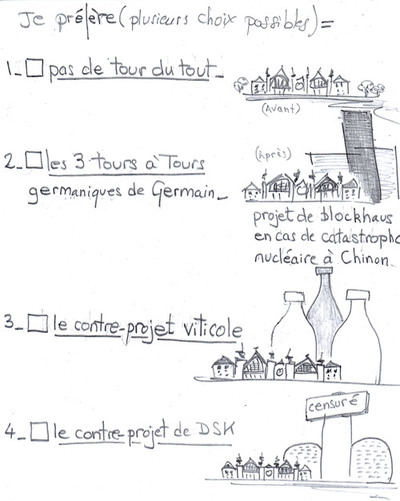 Je préfère (plusieurs choix possibles) =
1_ pas de tour du tout_
(Avant)
2_ les 3 tours à Tours
germaniques de Germain_
(Après)
projet de blockhaus
en cas de catastrophe
nucléaire à Chinon_
3_ le contre-projet viticole
4_ le contre-projet de DSK
censuré